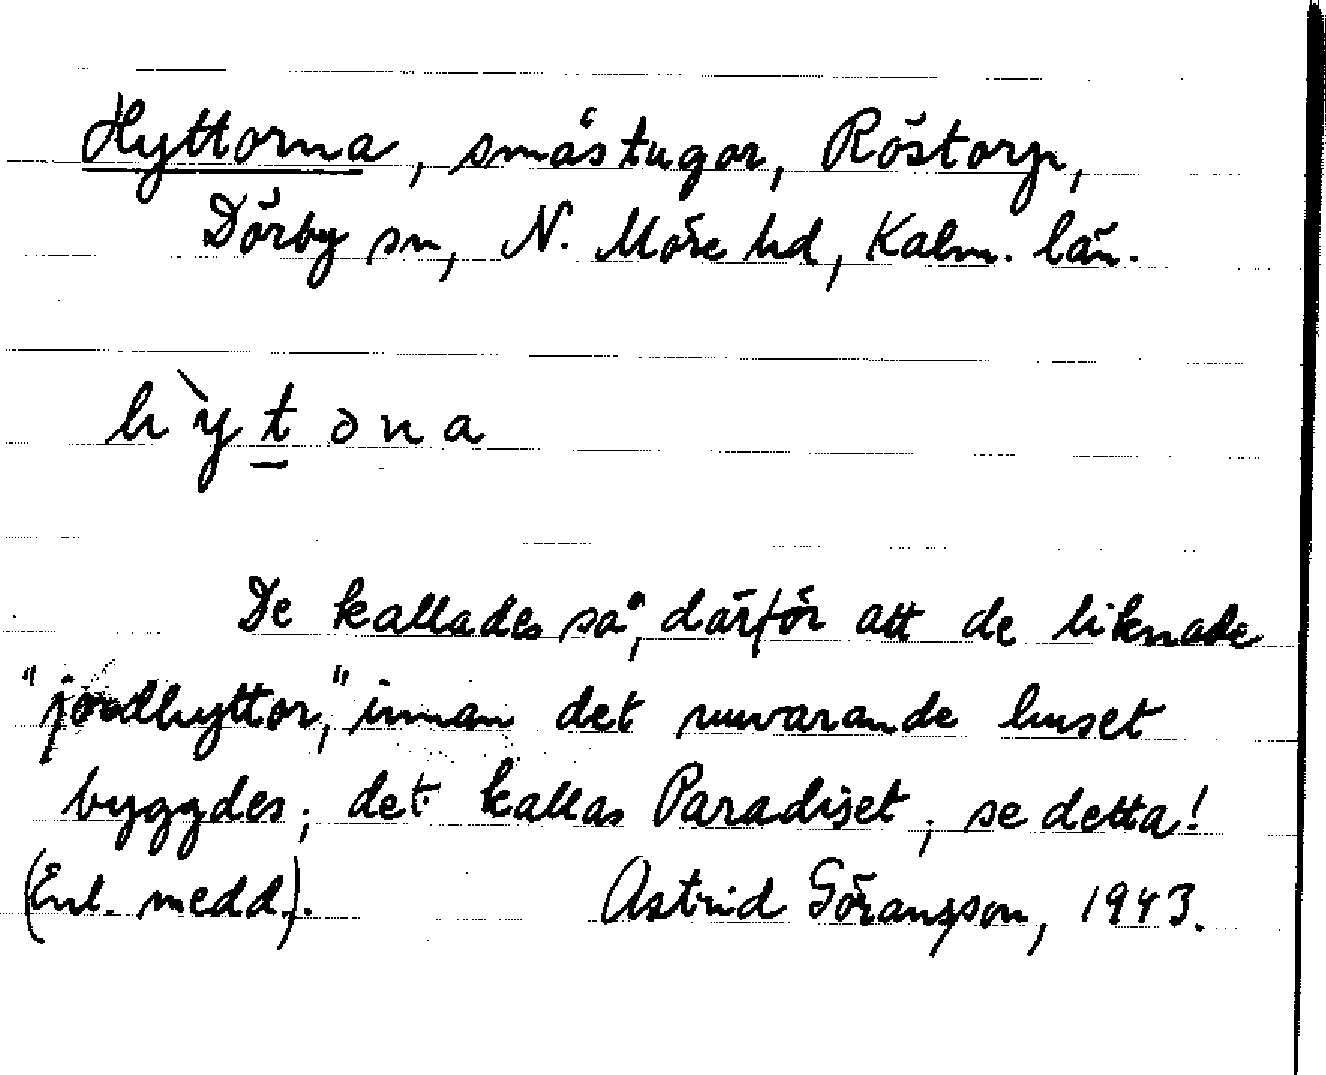 Hyttorna, småstugor, Röstorp,
Dörby sn, N. Möre hd, Kalm. län.
hỳtona
De kallades så, därför att de liknade
"jordhyttor," innan det nuvarande huset
byggdes; det kallas Paradiset, se detta!
(Enl. medd.). Astrid Göransson, 1943.